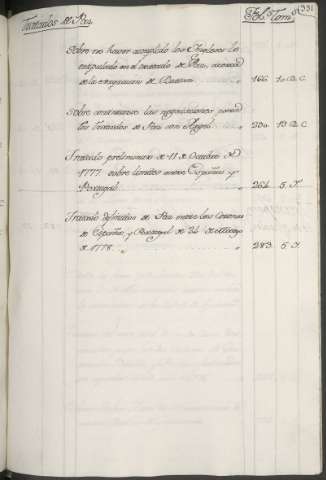 Tratados de Paz
Fol.s Tom.s
331
Sobre no haver cumplido los Yngleses lo
estipulado en el tratado de Paz, acerca
de la evaquacion de
166 10 B. C
Sobre continuarse las negociaciones para
los Tratados de Paz con Argel
204 13 B. C
Tratado preliminar de 11 de Octubre de
1777. sobre limites entre España y
Portugal
264 5. T
Tratado definitivo de Paz entre las Coronas
de España, y Portugal de 24 de Marzo
de 1778
283 5 T